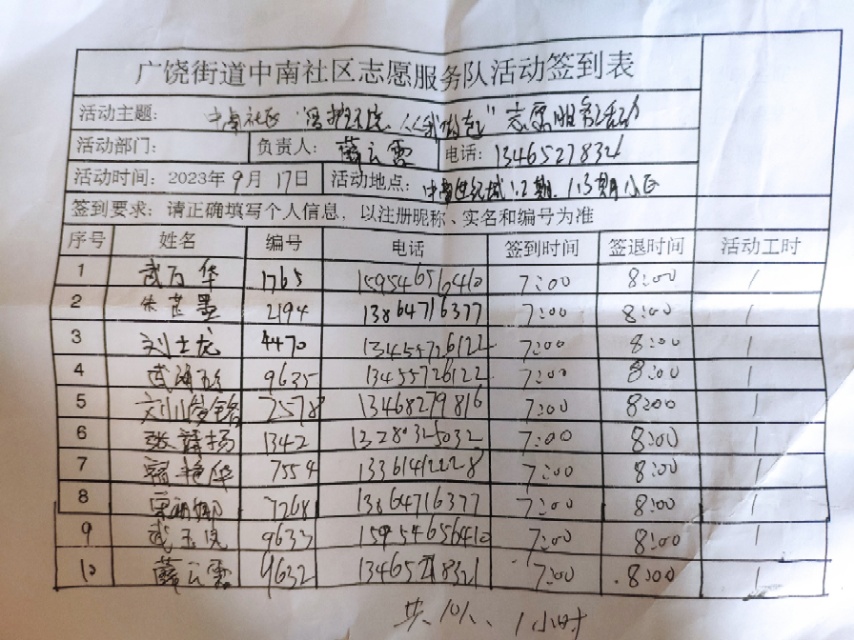 广饶街道中南社区志愿服务队活动签到表
活动主题: 中南社区"爱护环境 从我做起"志愿服务活动
活动部门: 负责人: 薛云霞 电话: 13465278321
活动时间: 2023年9月17日 活动地点: 中南世纪城1.2期.1.3期小区
签到要求: 请正确填写个人信息, 以注册昵称、实名和编号为准
序号 姓名 编号 电话 签到时间 签退时间 活动工时
1 武万华 1765 15954656410 7:00 8:00 1
2 2194 13864716377 7:00 8:00 1
3 刘士龙 4470 13455726122 7:00 8:00 1
4 9635 13455726122 7:00 8:00 1
5 2578 13468279816 7:00 8:00 1
6 1342 13280325032 7:00 8:00 1
7 艳华 7554 13361412228 7:00 8:00 1
8 宋丽娜 7268 13864716377 7:00 8:00 1
9 武玉 9633 15954656410 7:00 8:00 1
10 薛云霞 9632 13465278321 7:00 8:00 1
共10人、1小时